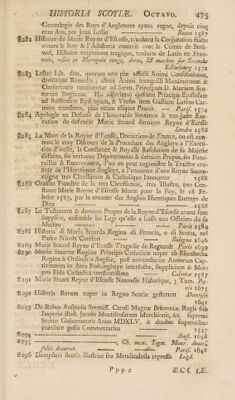 HISTORIA SCOTIÆ. OCTAVO. 475
Genealogie des Roys d'Angleterre ayans regne, depuis cinq
cens Ans, par Jean Leslie Rouen 1587
8282 Histoire de Marie Royne d'Escosse, touchant la Conjuration faicte
contre le Roy & l'Adulterie commis avec le Comte de Both-
wel, Histoire vrayement tragique, traduite de Latin en Fran-
cois,
Edinbourg 1572
8283 Leslei Lib. duo, quorum uno piæ afflicti Animi Consolationes,
divinaque Remedia; altero Animi tranquilli Munimentum &
Conservatio continentur ad Seren. Principem D. Mariam Sco-
torum Reginam. His adjecimus ejusdem Principis Epistolam
ad Rossensem Episcopum, & Versus item Gallico Latino Car-
mine translatos, pias etiam aliquot Preces Paris. 1574
8284 Apologie ou Defense de l'honorable Sentence & tres juste Exe-
cution de defuncte Marie Steuard derniere Royne d'Ecosse
Londre 1588
8285 La Mort de la Royne d'Ecosse, Douairiere de France, ou est con-
tenu le vray Discours de la Procedure des Anglois a l'Execu-
tion d'icelle, la Constance & Royalle Resolution de sa Majeste
defunte, ses vertueux Deportements & derniers Propos, ses Fune-
railles & Enterrement, d'ou on peut cognoistre la Traitre cru-
aute de l'Heretique Anglois, a l'encontre d'une Royne Souve-
raigne tres Chrestienne & Catholique Innocente 1588
8286 Oraison Funebre de la tres Chrestienne, tres Illustre, tres Con-
stante Marie Royne d'Escosse Morte pour la Foy, le 18 Fe-
brier 1587, par la cruauté des Anglois Heretiques Ennemys de
Dieu 1588
8287 Le Testament & derniers Propos de la Royne d'Escosse avant son
Supplice, ensemble les Legs qu'elle a laisse aux Officiers de sa
Maison Paris 1589
8288 Historia di Maria Stuarda Regina di Francia, e di Scotia, nel
Padre Nicolo Causino Bologna 1646
8289 Marie Stuard Reyne d'Ecosse Tragedie de Regnault Paris 1639
8290 Mariæ Stuartæ Reginæ Principis Catholicæ nuper ab Elizabetha
Regina & Ordinibus Angliæ, post novendecim Annorum Cap-
tivitatem in Arce Fodringhaye interfectæ, Supplicium & Mors
pro Fide Catholica constantissima Coloniæ 1587
8291 Marie Stuart Reyne d'Escosse Nouvelle Historique, 3 Tom. Pa-
ris 1675
8292 Historia Rerum nuper in Regno Scotiæ gestarum
1641
8293 De Rebus Auspiciis Serenissi. Caroli Magnæ Britanniæ Regis sub
Imperio illust. Jacobi Montisrosarum Marchionis, &c. supremi
Scotiæ Gubernatoris Anno MDXLIV. & duobus sequentibus
præclare gestis Commentarius
1647
8294 1648
8295 Paris. 1648
8296 Dempsteri Scotia illustrior seu Mendicabula repressis Lugd.
Ppp 2 ECCLE.